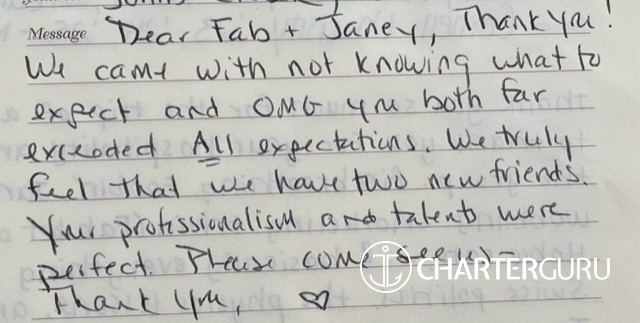 Message Dear Fab + Janey, Thank you!
We came with not knowing what to
expect and OMG you both far
exceeded All expectations. We truly
feel that we have two new friends.
Your professionalism and talents were
perfect. Please come see us-
CHARTERGURU
Thank you, ♡